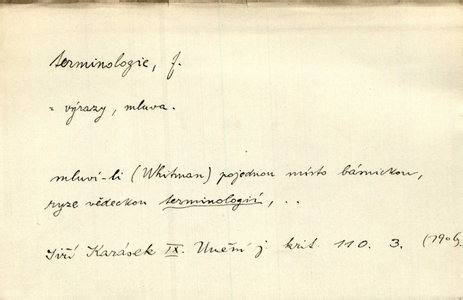 terminologie, f.
= výrazy, mluva.
mluví-li (Whitman) pojednou místo básnickou,
ryze vědeckou terminologií, ..
Jiří Karásek IX. Umění j. krit. 110. 3.